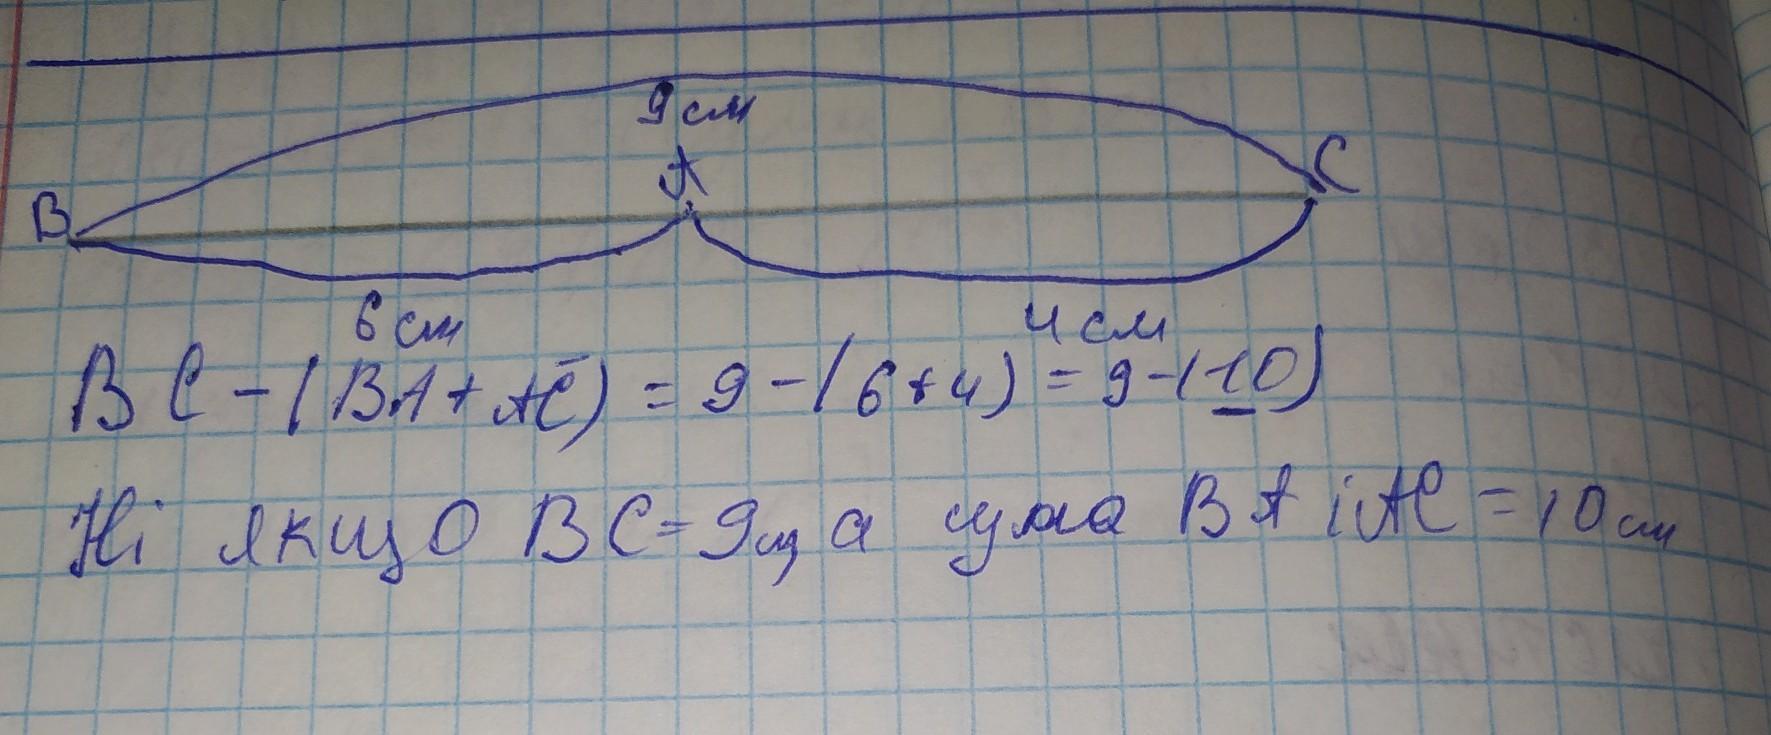 9 см
A
C
B
6 см
4 см
BC-(BA+AC)=9-(6+4)=9-(10)
Ні якщо BC=9см а сума BA і AC=10см